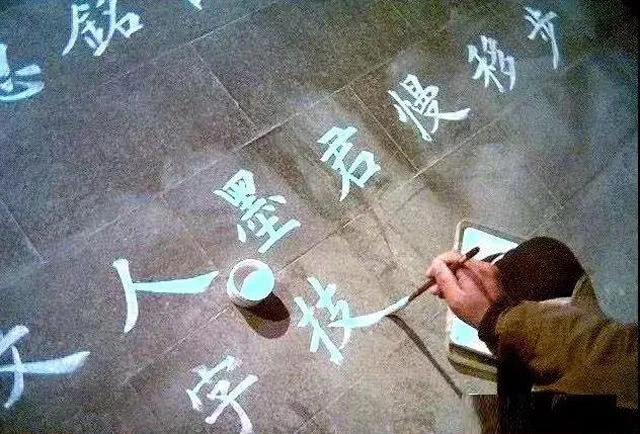 銘
文人墨君慢移步
字技